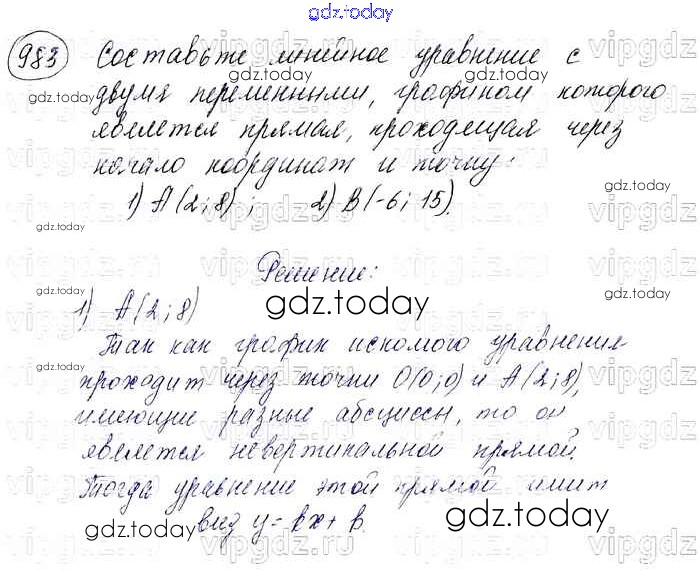 gdz.today
983 Составьте линейное уравнение с
двумя переменными, графиком которого
является прямая, проходящая через
начало координат и точку:
1) A(2; 8); 2) B(-6; 15).
Решение:
1) A(2; 8)
Так как график искомого уравнения
проходит через точки O(0; 0) и A(2; 8),
имеющие разные абсциссы, то он
является невертикальной прямой.
Тогда уравнение этой прямой имеет
вид y = kx + b.
gdz.today